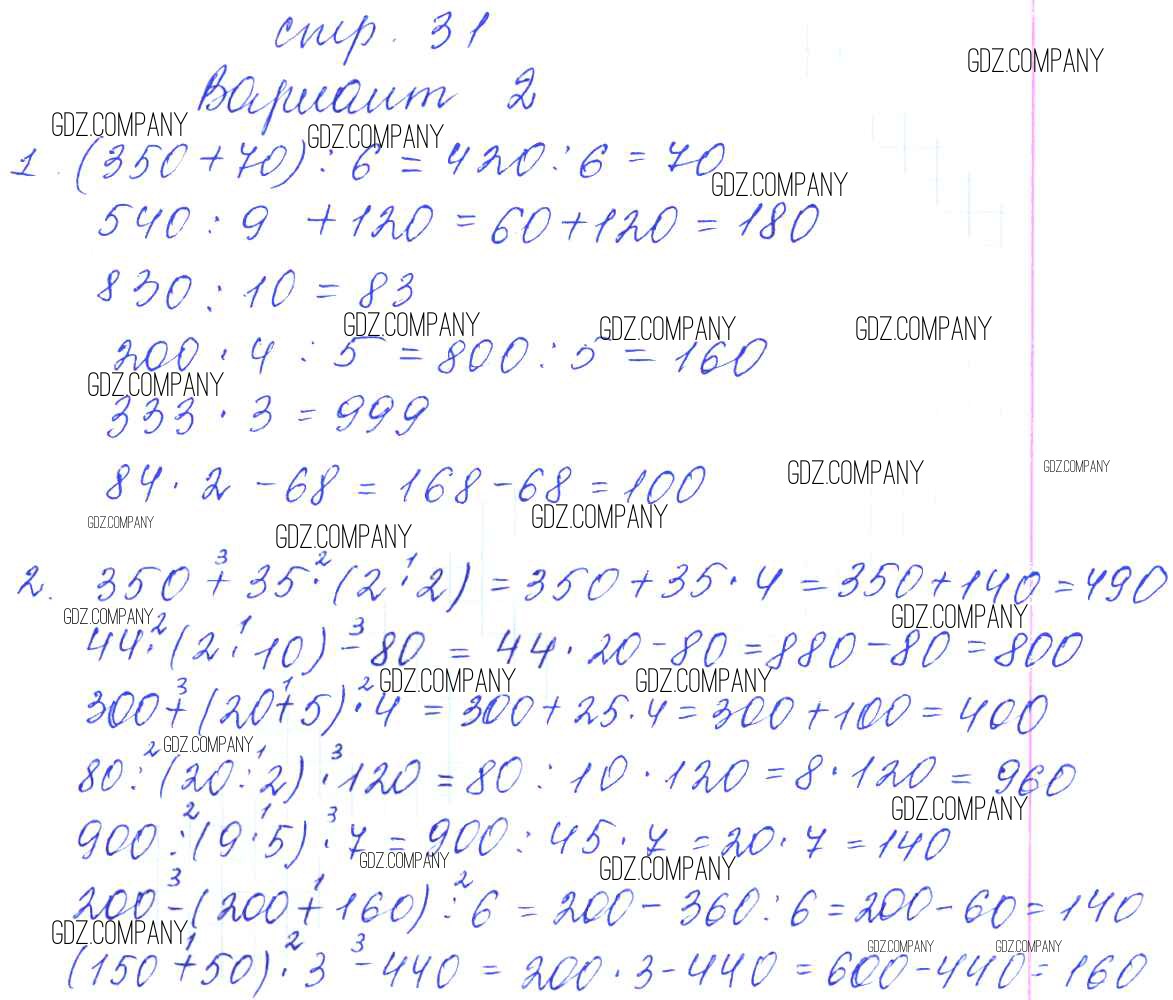 стр. 31
GDZ.COMPANY
Вариант 2
GDZ.COMPANY
GDZ.COMPANY
1. (350 + 70) : 6 = 420 : 6 = 70
GDZ.COMPANY
540 : 9 + 120 = 60 + 120 = 180
830 : 10 = 83
GDZ.COMPANY GDZ.COMPANY GDZ.COMPANY
200 · 4 : 5 = 800 : 5 = 160
GDZ.COMPANY
333 · 3 = 999
GDZ.COMPANY GDZ.COMPANY
84 · 2 - 68 = 168 - 68 = 100
GDZ.COMPANY GDZ.COMPANY GDZ.COMPANY
3 2 1
2. 350 + 35 · (2 · 2) = 350 + 35 · 4 = 350 + 140 = 490
GDZ.COMPANY GDZ.COMPANY
2 1 3
44 · (2 · 10) - 80 = 44 · 20 - 80 = 880 - 80 = 800
GDZ.COMPANY GDZ.COMPANY
3 1 2
300 + (20 + 5) · 4 = 300 + 25 · 4 = 300 + 100 = 400
GDZ.COMPANY
2 1 3
80 : (20 : 2) · 120 = 80 : 10 · 120 = 8 · 120 = 960
GDZ.COMPANY
2 1 3
900 : (9 · 5) · 7 = 900 : 45 · 7 = 20 · 7 = 140
GDZ.COMPANY GDZ.COMPANY
3 1 2
200 - (200 + 160) : 6 = 200 - 360 : 6 = 200 - 60 = 140
GDZ.COMPANY GDZ.COMPANY GDZ.COMPANY
1 2 3
(150 + 50) · 3 - 440 = 200 · 3 - 440 = 600 - 440 = 160